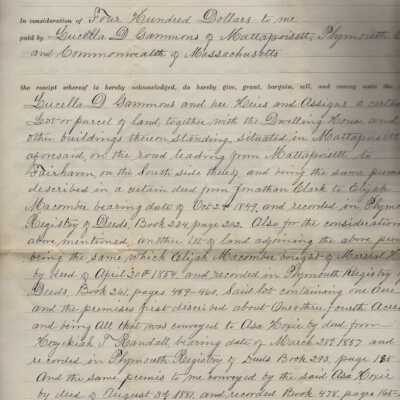 In consideration of Four Hundred Dollars to me
paid by Lucella D Gammons of Mattapoisett, Plymouth
and Commonwealth of Massachusetts
the receipt whereof is hereby acknowledged, do hereby give, grant, bargain, sell, and convey unto the
Lucella D. Gammons and her Heirs and Assigns a certain
Lot or parcel of land, together with the Dwelling House and
other buildings thereon standing, situated in Mattapoisett
aforesaid, on the road leading from Mattapoisett to
Fairhaven, on the South side thereof and being the same premises
described in a certain deed from Jonathan Clark to Elijah
Macomber bearing date of Oct 2d 1849, and recorded in Plymouth
Registry of Deeds, Book 234 page 202. Also for the consideration
above mentioned, another lot of land adjoining the above
being the same, which Elijah Macomber bought of
by deed of April 20th 1854, and recorded in Plymouth Registry of
Deeds, Book 261, pages 459-460, Said lot containing one Acre
and the premises first described about One &
and being All that was conveyed to Asa Hoxie by deed from
T. Randall, bearing date of March 21st 1857 and
recorded in Plymouth Registry of Deeds, Book 293, page
And the same premis to me conveyed by the said Asa Hoxie
by deed of August 3d 1881, and recorded Book 478, pages 165-